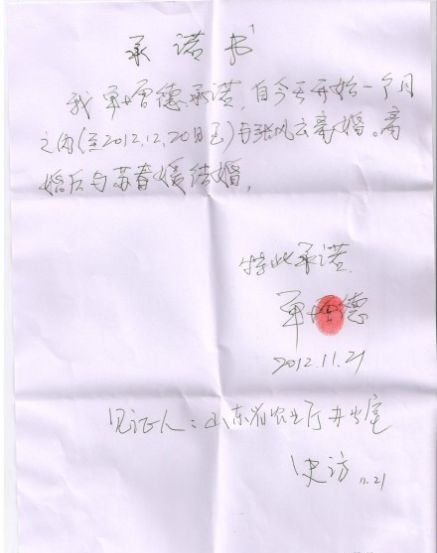 承诺书
我单增德承诺，自今天开始一个月
之内(至2012.12.20日止)与张风云离婚。离
婚后与苏春媛结婚，
特此承诺
单增德
2012.11.21
见证人：山东省农业厅办公室
史访 11.21